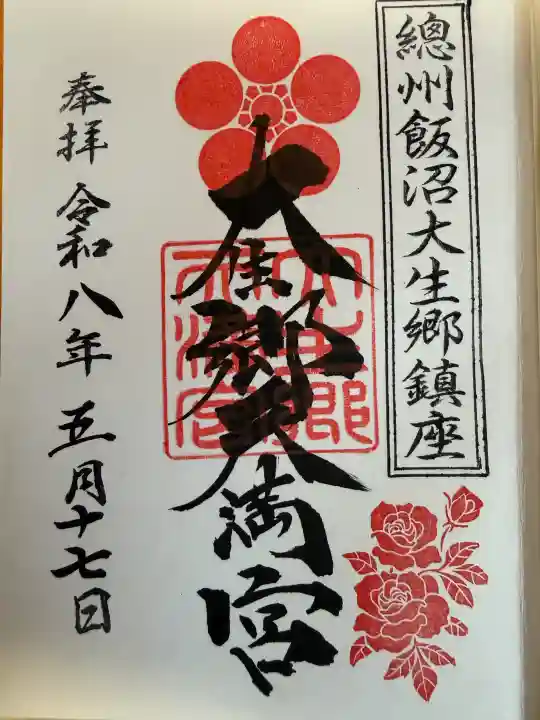 總州飯沼大生郷鎮座
大生郷天満宮
奉拝 令和八年 五月十七日